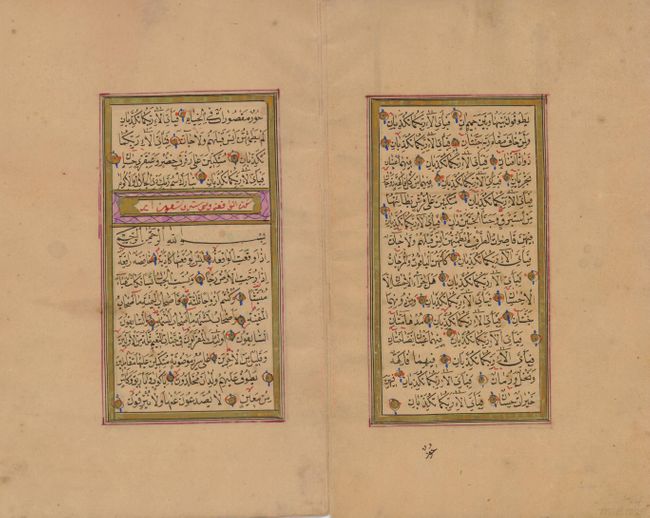 يطوفون بينها وبين حميم آن فبأي آلاء ربكما تكذبان
ولمن خاف مقام ربه جنتان فبأي آلاء ربكما تكذبان
ذواتا أفنان فبأي آلاء ربكما تكذبان فيهما عينان
تجريان فبأي آلاء ربكما تكذبان فيهما من كل فاكهة زوجان
فبأي آلاء ربكما تكذبان متكئين على فرش بطائنها
من إستبرق وجنا الجنتين دان فبأي آلاء ربكما تكذبان
فيهن قاصرات الطرف لم يطمثهن إنس قبلهم ولا جان
فبأي آلاء ربكما تكذبان كأنهن الياقوت والمرجان
فبأي آلاء ربكما تكذبان هل جزاء الإحسان إلا
الإحسان فبأي آلاء ربكما تكذبان ومن دونهما
جنتان فبأي آلاء ربكما تكذبان مدهامتان
فبأي آلاء ربكما تكذبان فيهما عينان نضاختان
فبأي آلاء ربكما تكذبان فيهما فاكهة
ونخل ورمان فبأي آلاء ربكما تكذبان فيهن
خيرات حسان فبأي آلاء ربكما تكذبان
حور
حور مقصورات في الخيام فبأي آلاء ربكما تكذبان
لم يطمثهن إنس قبلهم ولا جان فبأي آلاء ربكما
تكذبان متكئين على رفرف خضر وعبقري حسان
فبأي آلاء ربكما تكذبان تبارك اسم ربك ذي الجلال والإكرام
سورة الواقعة وهي ست وتسعون آية
بسم الله الرحمن الرحيم
إذا وقعت الواقعة ليس لوقعتها كاذبة خافضة رافعة
إذا رجت الأرض رجا وبست الجبال بسا فكانت هباء
منبثا وكنتم أزواجا ثلاثة فأصحاب الميمنة ما أصحاب
الميمنة وأصحاب المشئمة ما أصحاب المشئمة والسابقون
السابقون أولئك المقربون في جنات النعيم ثلة من الأولين
وقليل من الآخرين على سرر موضونة متكئين عليها متقابلين
يطوف عليهم ولدان مخلدون بأكواب وأباريق وكأس
من معين لا يصدعون عنها ولا ينزفون